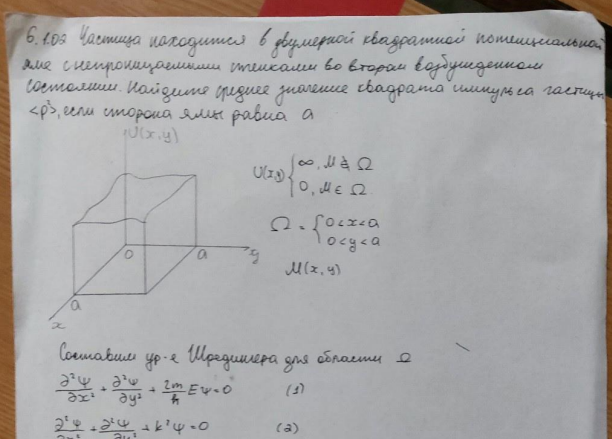 6.102 Частица находится в двумерной квадратной потенциальной
яме с непроницаемыми стенками во втором возбужденном
состоянии. Найдите среднее значение квадрата импульса частицы
<p²>, если сторона ямы равна a
U(x,y)
U(x,y) { ∞, M ∉ Ω
0, M ∈ Ω
Ω = { 0<x<a
0<y<a
M(x,y)
0
a
y
a
x
Составим ур-е Шредингера для области Ω
∂²Ψ/∂x² + ∂²Ψ/∂y² + 2m/ħ EΨ=0 (1)
∂²Ψ/∂x² + ∂²Ψ/∂y² + k²Ψ=0 (2)